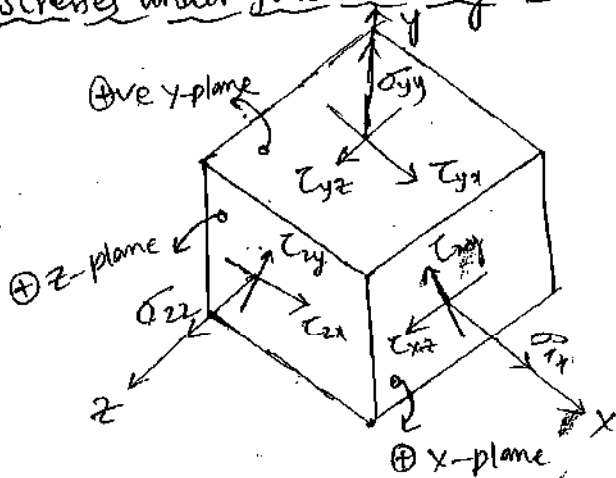 stresses under
Y
⊕ve Y-plane
σyy
τyz
τyx
⊕ z-plane
τzy
τzx
σzz
τxy
τxz
σx
Z
X
⊕ X-plane